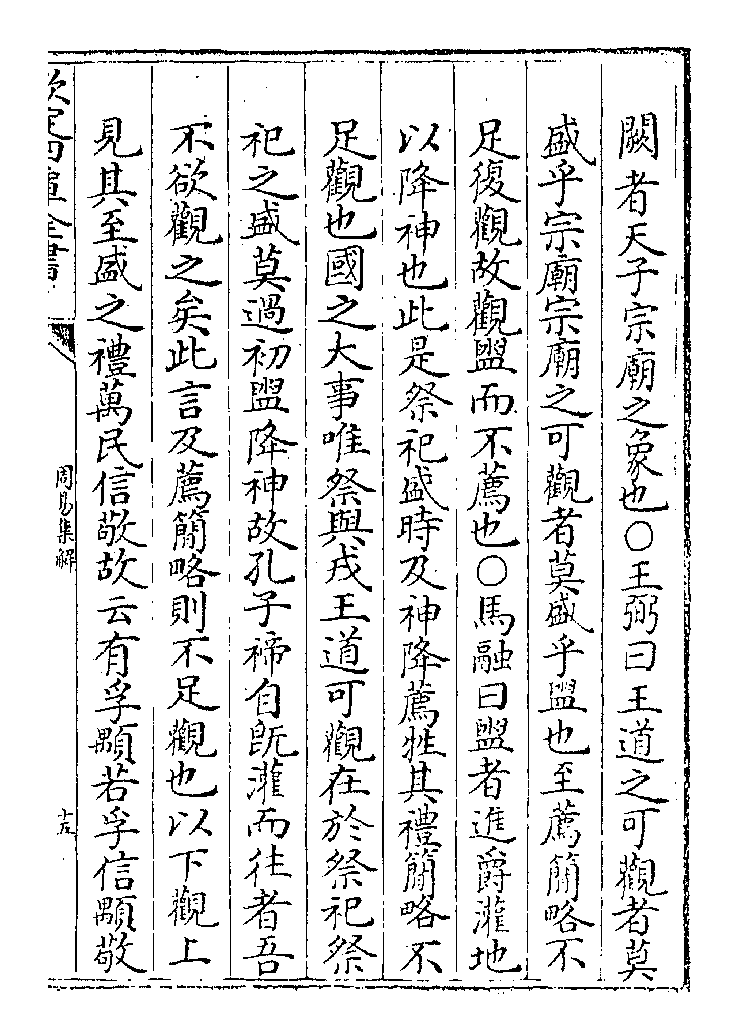 闕者天子宗廟之象也○王弼曰王道之可觀者莫
盛乎宗廟宗廟之可觀者莫盛乎盥也至薦簡略不
足復觀故觀盥而不薦也○馬融曰盥者進爵灌地
以降神也此是祭祀盛時及神降薦牲其禮簡略不
足觀也國之大事唯祭與戎王道可觀在於祭祀祭
祀之盛莫過初盥降神故孔子禘自旣灌而往者吾
不欲觀之矣此言及薦簡略則不足觀也以下觀上
見其至盛之禮萬民信敬故云有孚顒若孚信顒敬
欽定四庫全書
周易集解
十五